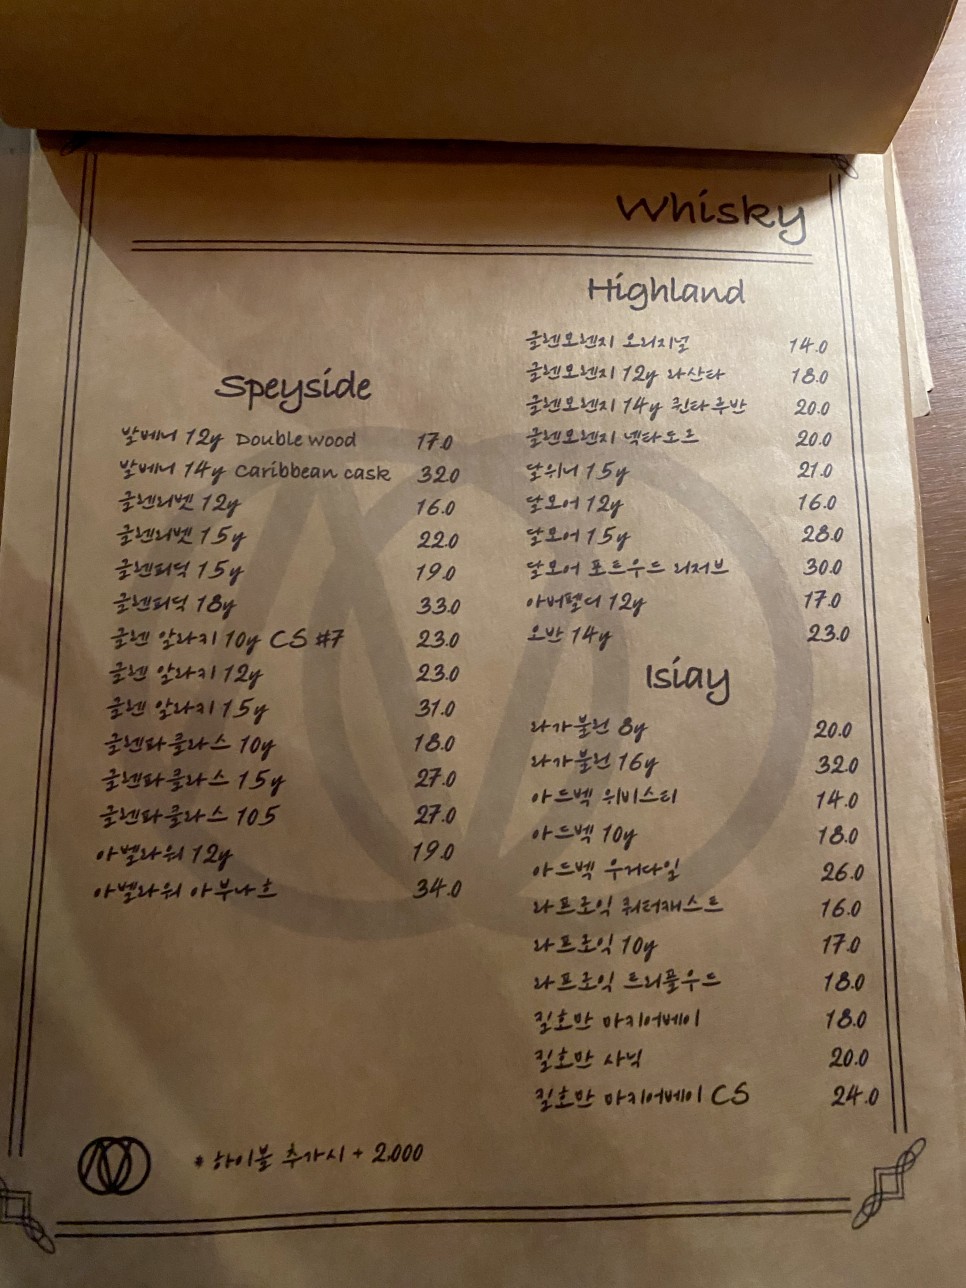 Whisky
Speyside
발베니 12y Double wood 17.0
발베니 14y Caribbean cask 32.0
글렌리벳 12y 16.0
글렌리벳 15y 22.0
글렌피딕 15y 19.0
글렌피딕 18y 33.0
글렌 알라키 10y CS #7 23.0
글렌 알라키 12y 23.0
글렌 알라키 15y 31.0
글렌파클라스 10y 18.0
글렌파클라스 15y 27.0
글렌파클라스 105 27.0
아벨라워 12y 19.0
아벨라워 아부나흐 34.0
Highland
글렌모렌지 오리지널 14.0
글렌모렌지 12y 라산타 18.0
글렌모렌지 14y 퀸타루반 20.0
글렌모렌지 넥타도르 20.0
달위니 15y 21.0
달모어 12y 16.0
달모어 15y 28.0
달모어 포트우드 리저브 30.0
아버펠디 12y 17.0
오반 14y 23.0
Isiay
라가불린 8y 20.0
라가불린 16y 32.0
아드벡 위비스티 14.0
아드벡 10y 18.0
아드벡 우거다일 26.0
라프로익 쿼터캐스트 16.0
라프로익 10y 17.0
라프로익 트리플우드 18.0
킬호만 마키어베이 18.0
킬호만 사닉 20.0
킬호만 마키어베이 CS 24.0
* 하이볼 추가시 + 2.000